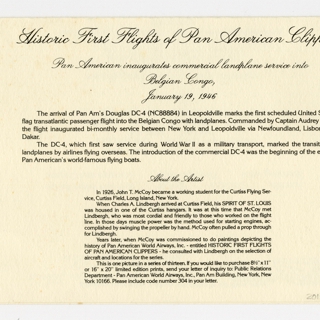 Historic First Flights of Pan American Clipp
Pan American inaugurates commercial landplane service into
Belgian Congo,
January 19, 1946
The arrival of Pan Am's Douglas DC-4 (NC88884) in Leopoldville marks the first scheduled United S
flag transatlantic passenger flight into the Belgian Congo with landplanes. Commanded by Captain Audrey
the flight inaugurated bi-monthly service between New York and Leopoldville via Newfoundland, Lisbon
Dakar.
The DC-4, which first saw service during World War II as a military transport, marked the transit
landplanes by airlines flying overseas. The introduction of the commercial DC-4 was the beginning of the e
Pan American's world-famous flying boats.
About the Artist
In 1926, John T. McCoy became a working student for the Curtiss Flying Ser-
vice, Curtiss Field, Long Island, New York.
When Charles A. Lindbergh arrived at Curtiss Field, his SPIRIT OF ST. LOUIS
was housed in one of the Curtiss hangars. It was at this time that McCoy met
Lindbergh, who was most cordial and friendly to those who worked on the flight
line. In those days muscle power was the method used for starting engines, ac-
complished by swinging the propeller by hand. McCoy often pulled a prop through
for Lindbergh.
Years later, when McCoy was commissioned to do paintings depicting the
history of Pan American World Airways, Inc. - entitled HISTORIC FIRST FLIGHTS
OF PAN AMERICAN CLIPPERS - he consulted with Lindbergh on the selection of
aircraft and locations for the series.
This is one picture in a series of thirteen. If you would like to purchase 8½" x 11"
or 16" x 20" limited edition prints, send your letter of inquiry to: Public Relations
Department - Pan American World Airways, Inc., Pan Am Building, New York, New York
10166. Please include code number 304 in your letter.